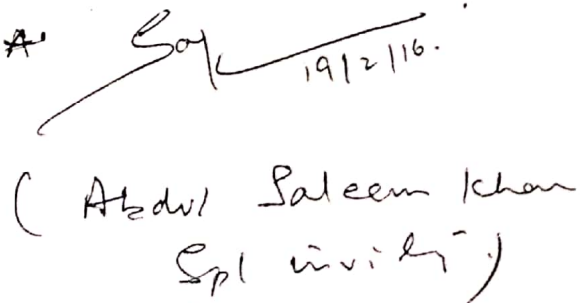 19/2/16.
( Abdul Saleem Khan
Spl invity )